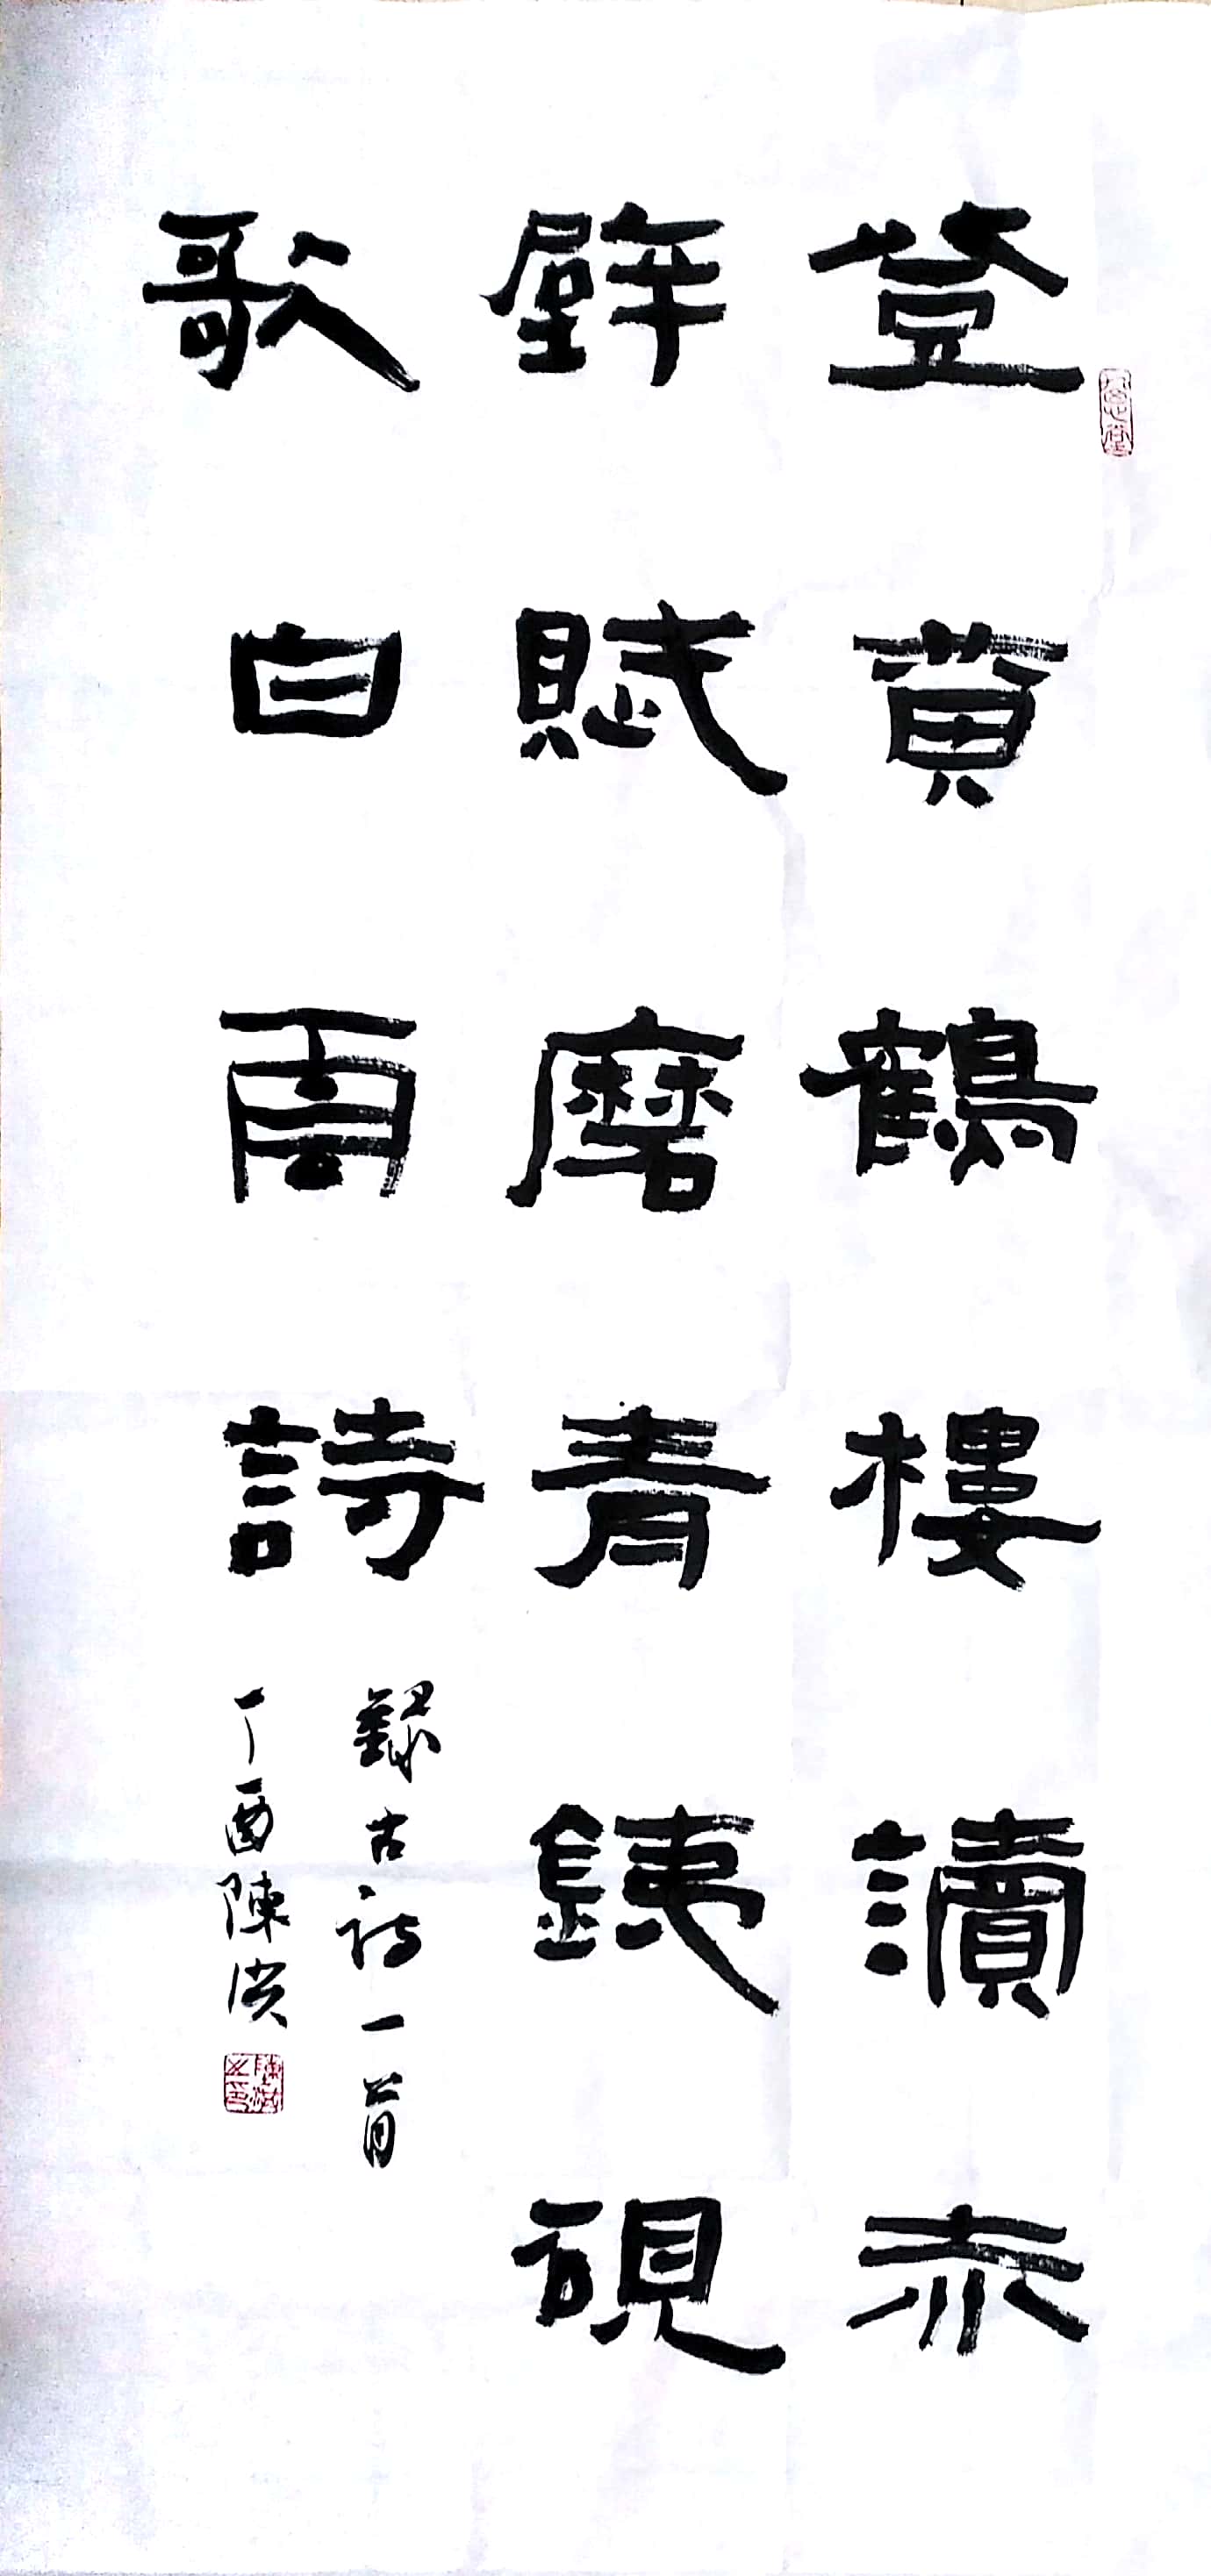 登黄鶴樓讀赤
壁賦磨青鐵硯
歌白雨詩
録古詩一首
丁酉陳洪